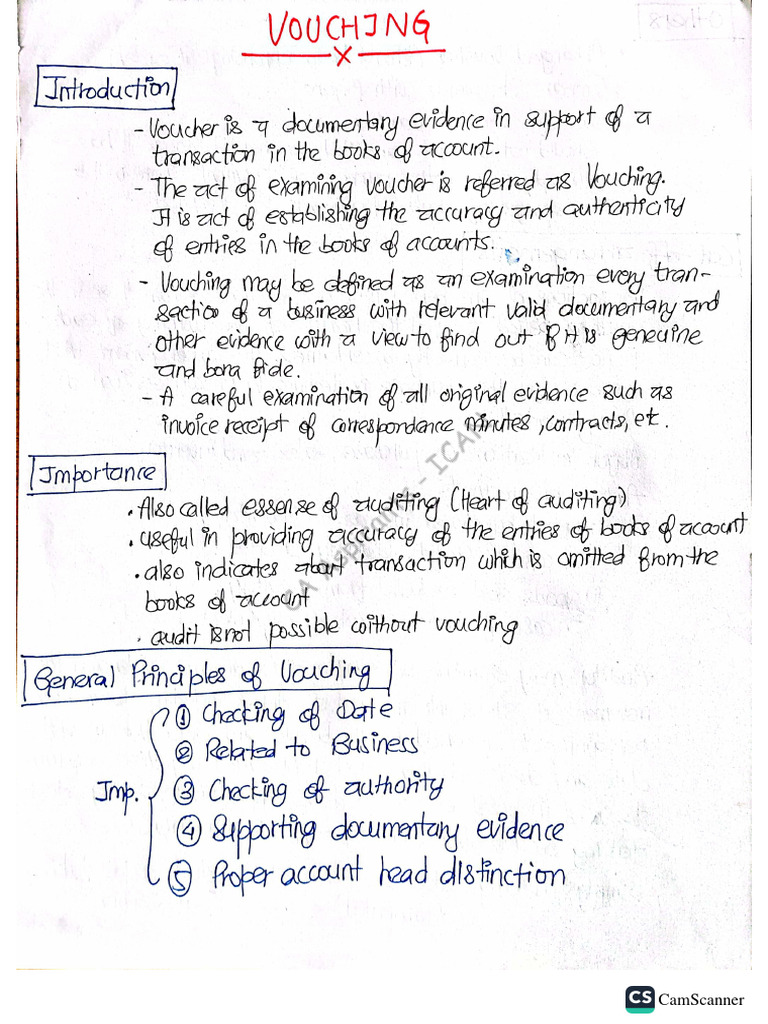 VOUCHING
Introduction
- Voucher is a documentary evidence in support of a
transaction in the books of account.
- The act of examining voucher is referred as Vouching.
It is act of establishing the accuracy and authenticity
of entries in the books of accounts.
- Vouching may be defined as an examination every tran-
saction of a business with relevant valid documentary and
other evidence with a view to find out if it is genecuine
and bona fide.
- A careful examination of all original evidence such as
invoice receipt of correspondance minutes, contracts, etc.
Importance
. Also called essense of auditing (Heart of auditing)
. useful in providing accuracy of the entries of books of account
. also indicates about transaction which is omitted from the
books of account
. audit is not possible without vouching
General Principles of Vouching
① Checking of Date
② Related to Business
Imp. ③ Checking of authority
④ Supporting documentary evidence
⑤ Proper account head distinction
CS CamScanner